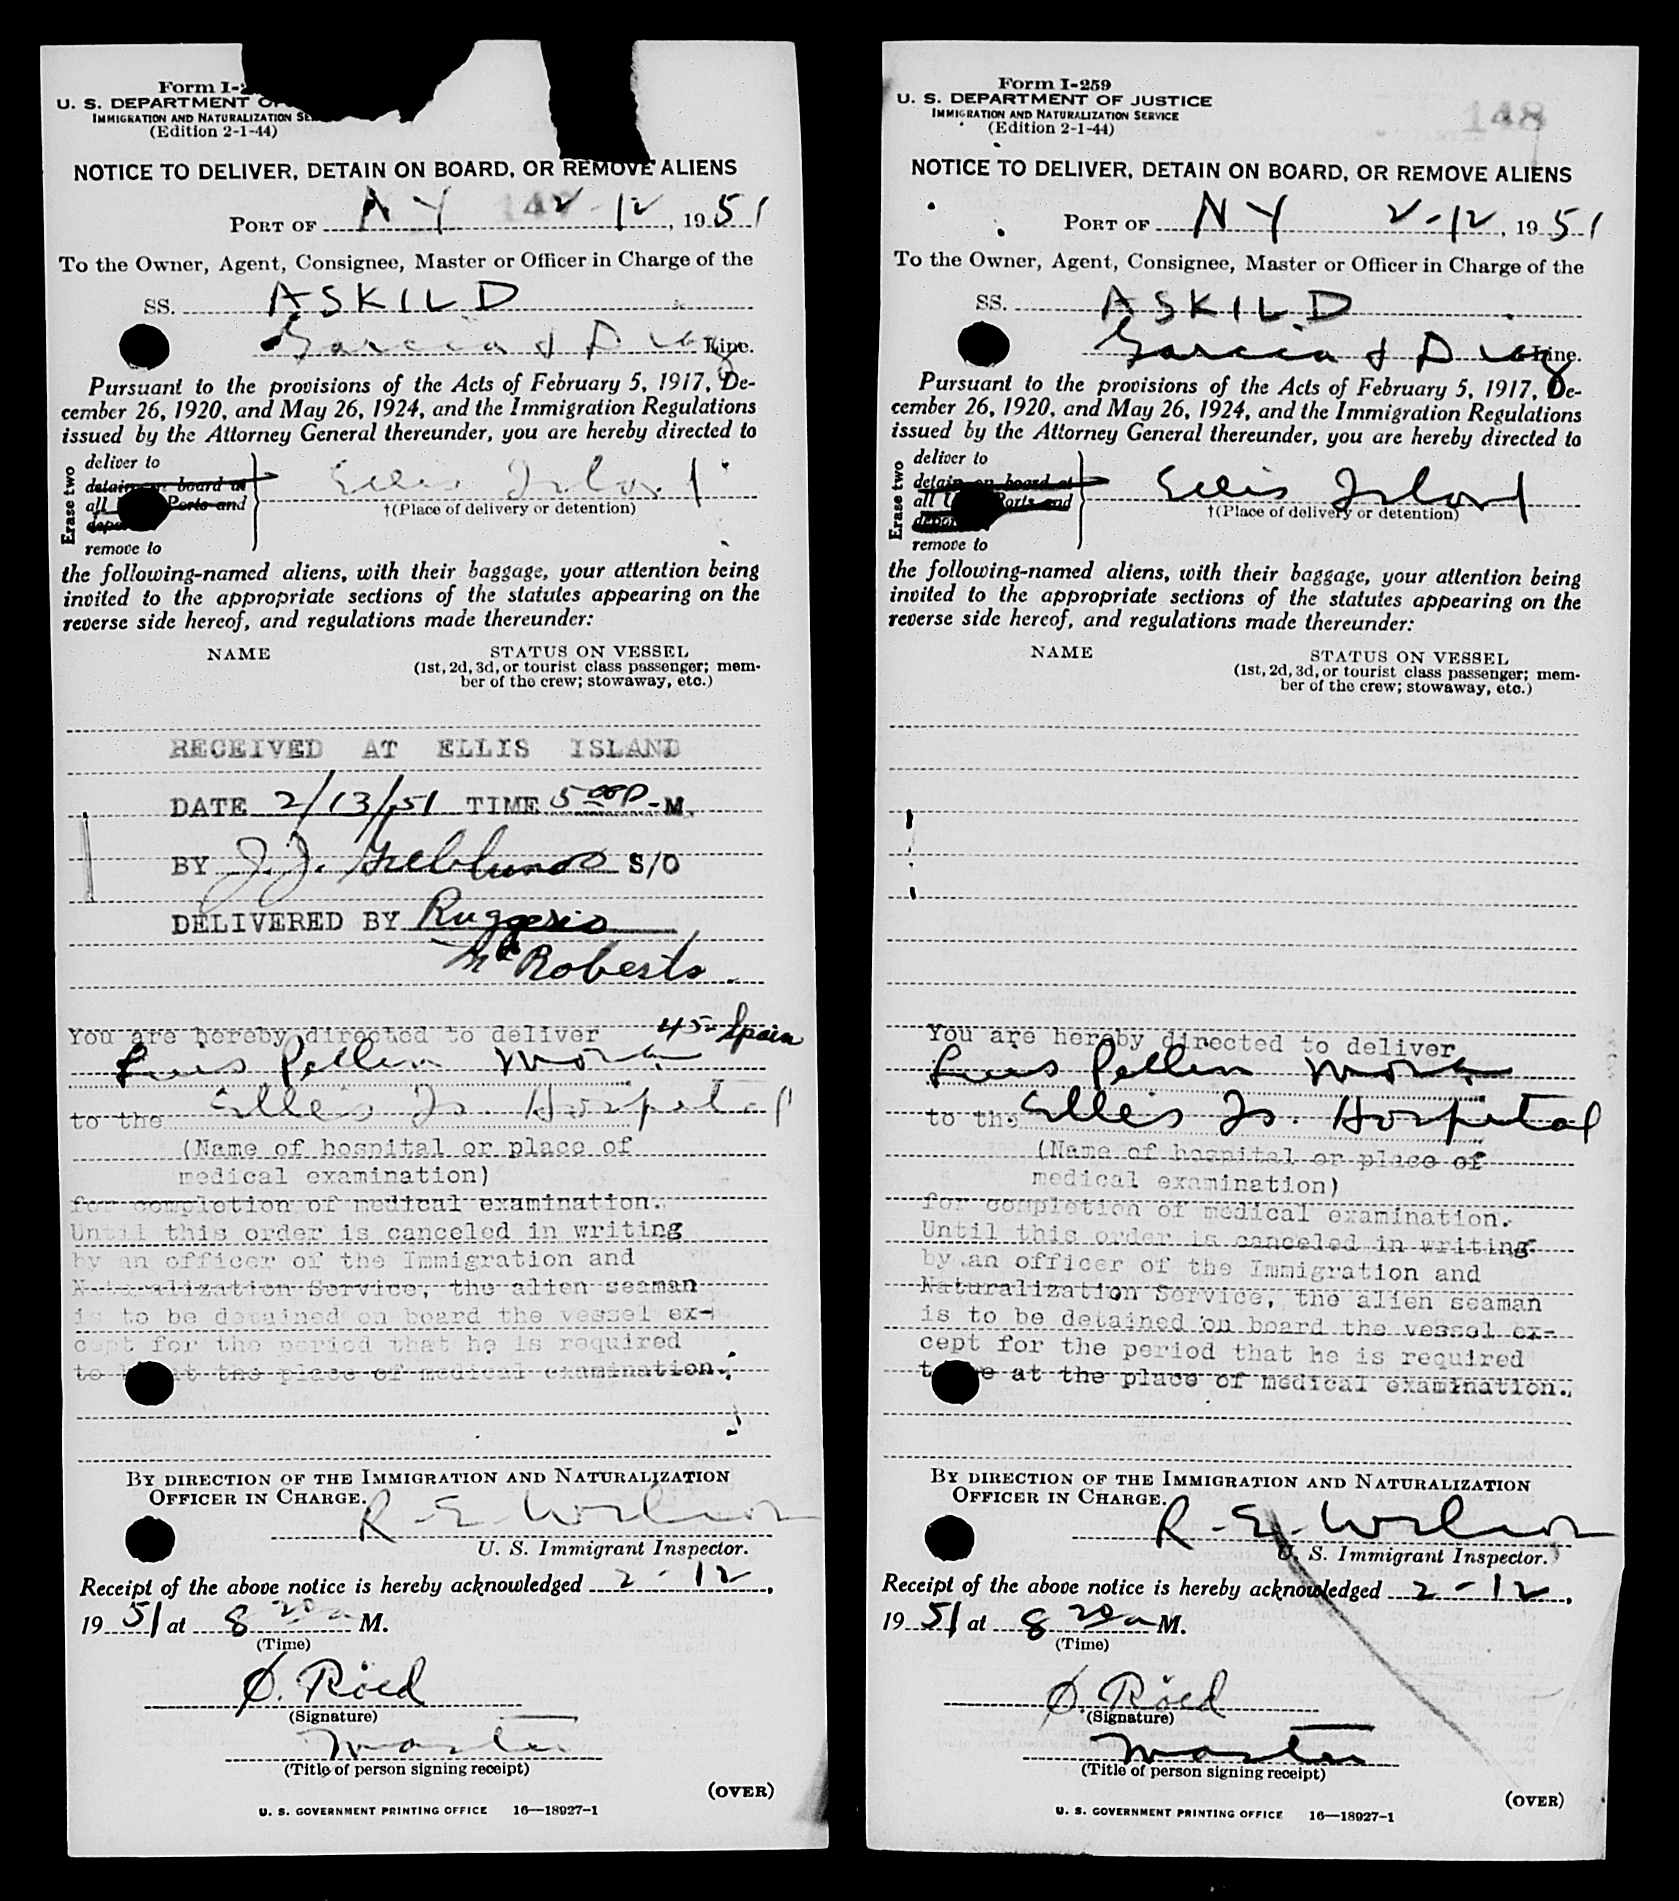 Form I-2
U. S. DEPARTMENT OF
IMMIGRATION AND NATURALIZATION SE
(Edition 2-1-44)
NOTICE TO DELIVER, DETAIN ON BOARD, OR REMOVE ALIENS
PORT OF N Y 2-12, 1951
To the Owner, Agent, Consignee, Master or Officer in Charge of the
SS. ASKILD
Garcia & Diaz Line.
Pursuant to the provisions of the Acts of February 5, 1917, De-
cember 26, 1920, and May 26, 1924, and the Immigration Regulations
issued by the Attorney General thereunder, you are hereby directed to
Erase two
deliver to
detain on board at
all Ports and
depo
remove to
Ellis Island
†(Place of delivery or detention)
the following-named aliens, with their baggage, your attention being
invited to the appropriate sections of the statutes appearing on the
reverse side hereof, and regulations made thereunder:
NAME STATUS ON VESSEL
(1st, 2d, 3d, or tourist class passenger; mem-
ber of the crew; stowaway, etc.)
RECEIVED AT ELLIS ISLAND
DATE 2/13/51 TIME 5 00 P-M.
BY J. J. S/O
DELIVERED BY Ruggerio
McRoberts
You are hereby directed to deliver 45-Spain
Luis Pellin Mora
to the Ellis Is. Hospital
(Name of hospital or place of
medical examination)
for completion of medical examination.
Until this order is canceled in writing
by an officer of the Immigration and
Naturalization Service, the alien seaman
is to be detained on board the vessel ex-
cept for the period that he is required
to b at the place of medical examination.
BY DIRECTION OF THE IMMIGRATION AND NATURALIZATION
OFFICER IN CHARGE.
R. E. Wilson
U. S. Immigrant Inspector.
Receipt of the above notice is hereby acknowledged 2-12,
1951 at 8 20 a M.
(Time)
Ø. Röed
(Signature)
Master
(Title of person signing receipt)
(OVER)
U. S. GOVERNMENT PRINTING OFFICE 16—18927-1
Form I-259
U. S. DEPARTMENT OF JUSTICE
IMMIGRATION AND NATURALIZATION SERVICE
(Edition 2-1-44)
148
NOTICE TO DELIVER, DETAIN ON BOARD, OR REMOVE ALIENS
PORT OF N Y 2-12, 1951
To the Owner, Agent, Consignee, Master or Officer in Charge of the
SS. ASKILD
Garcia & Diaz Line.
Pursuant to the provisions of the Acts of February 5, 1917, De-
cember 26, 1920, and May 26, 1924, and the Immigration Regulations
issued by the Attorney General thereunder, you are hereby directed to
Erase two
deliver to
detain on board at
all U Ports and
depor
remove to
Ellis Island
†(Place of delivery or detention)
the following-named aliens, with their baggage, your attention being
invited to the appropriate sections of the statutes appearing on the
reverse side hereof, and regulations made thereunder:
NAME STATUS ON VESSEL
(1st, 2d, 3d, or tourist class passenger; mem-
ber of the crew; stowaway, etc.)
You are hereby directed to deliver
Luis Pellin Mora
to the Ellis Is. Hospital
(Name of hospital or place of
medical examination)
for completion of medical examination.
Until this order is canceled in writing
by an officer of the Immigration and
Naturalization Service, the alien seaman
is to be detained on board the vessel ex-
cept for the period that he is required
t e at the place of medical examination.
BY DIRECTION OF THE IMMIGRATION AND NATURALIZATION
OFFICER IN CHARGE.
R. E. Wilson
U. S. Immigrant Inspector.
Receipt of the above notice is hereby acknowledged 2-12,
1951 at 8 20 a M.
(Time)
Ø. Röed
(Signature)
Master
(Title of person signing receipt)
(OVER)
U. S. GOVERNMENT PRINTING OFFICE 16—18927-1